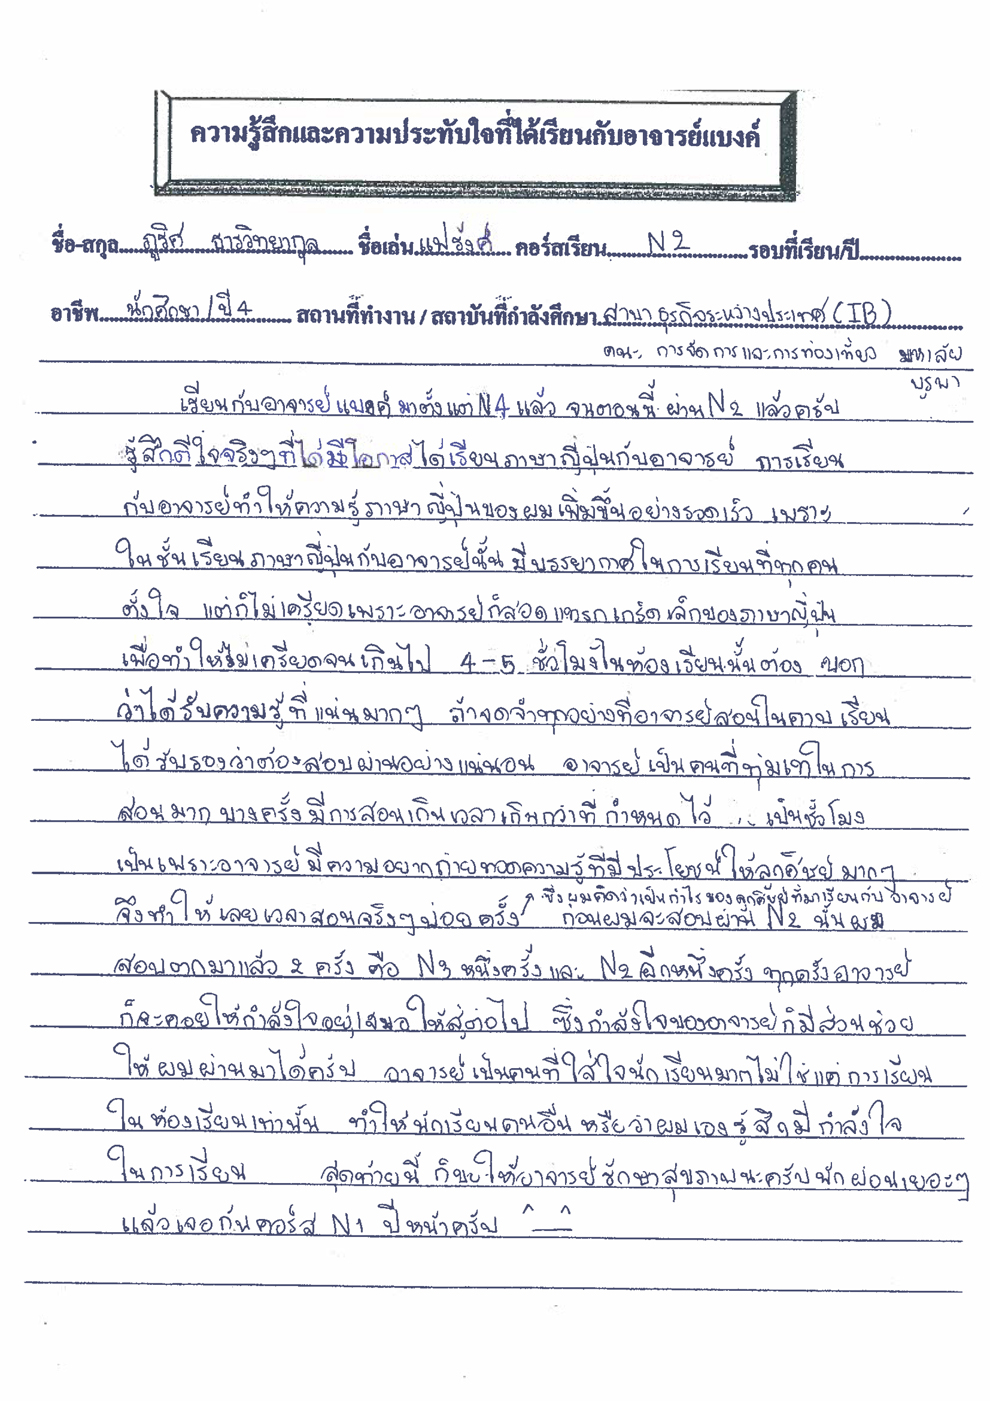 ความรู้สึกและความประทับใจที่ได้เรียนกับอาจารย์แบงค์
ชื่อ-สกุล ภูริศ ธารวิทยากุล ชื่อเล่น แฟรังค์ คอร์สเรียน N2 รอบที่เรียน/ปี
อาชีพ นักศึกษา/ปี 4 สถานที่ทำงาน / สถาบันที่กำลังศึกษา สาขา ธุรกิจระหว่างประเทศ (IB)
คณะ การจัดการและการท่องเที่ยว มหาลัย
บูรพา
เรียนกับอาจารย์แบงค์มาตั้งแต่ N4 แล้ว จนตอนนี้ ผ่าน N2 แล้วครับ
รู้สึกดีใจจริงๆที่ได้มีโอกาสได้เรียนภาษาญี่ปุ่นกับอาจารย์ การเรียน
กับอาจารย์ทำให้ความรู้ภาษาญี่ปุ่นของผมเพิ่มขึ้นอย่างรวดเร็ว เพราะ
ในชั้นเรียนภาษาญี่ปุ่นกับอาจารย์นั้น มีบรรยากาศในการเรียนที่ทุกคน
ตั้งใจ แต่ก็ไม่เครียดเพราะอาจารย์ก็สอดแทรกเกร็ดเล็กของภาษาญี่ปุ่น
เพื่อทำให้ไม่เครียดจนเกินไป 4-5 ชั่วโมงในห้องเรียนนั้นต้อง บอก
ว่าได้รับความรู้ที่แน่นมากๆ ถ้าจดจำทุกอย่างที่อาจารย์สอนในคาบเรียน
ได้รับรองว่าต้องสอบผ่านอย่างแน่นอน อาจารย์เป็นคนที่ทุ่มเทในการ
สอนมาก บางครั้งมีการสอนเกินเวลาเกินกว่าที่กำหนดไว้ ... เป็นชั่วโมง
เป็นเพราะอาจารย์มีความอยากถ่ายทอดความรู้ที่มีประโยชน์ให้ลูกศิษย์มากๆ
จึงทำให้เลยเวลาสอนจริงๆบ่อยครั้ง ซึ่งผมคิดว่าเป็นกำไรของลูกศิษย์ที่มาเรียนกับอาจารย์
ก่อนผมจะสอบผ่าน N2 นั้นผม
สอบตกมาแล้ว 2 ครั้ง คือ N3 หนึ่งครั้งและ N2 อีกหนึ่งครั้ง ทุกครั้งอาจารย์
ก็จะคอยให้กำลังใจอยู่เสมอให้สู้ต่อไป ซึ่งกำลังใจของอาจารย์ก็มีส่วนช่วย
ให้ผมผ่านมาได้ครับ อาจารย์เป็นคนที่ใส่ใจนักเรียนมากไม่ใช่แค่การเรียน
ในห้องเรียนเท่านั้น ทำให้นักเรียนคนอื่นหรือว่าผมเองรู้สึกมีกำลังใจ
ในการเรียน สุดท้ายนี้ ก็ขอให้อาจารย์รักษาสุขภาพนะครับพักผ่อนเยอะๆ
แล้วเจอกันคอร์ส N1 ปีหน้าครับ ^__^